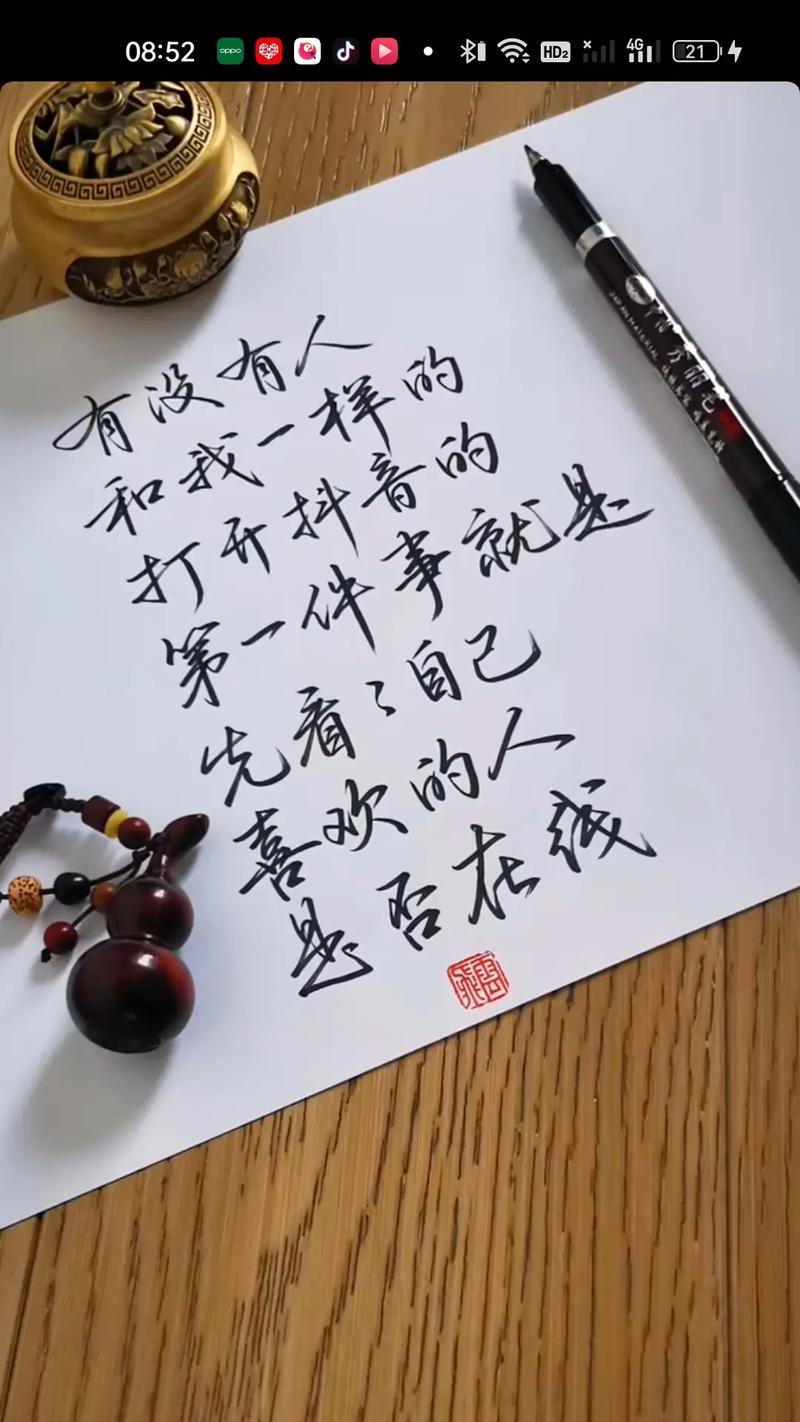 08:52
oppo
HD2
4G
21
有没有人
和我一样的
打开抖音的
第一件事就是
先看了自己
喜欢的人
是否在线
JAPAN MATERIAL